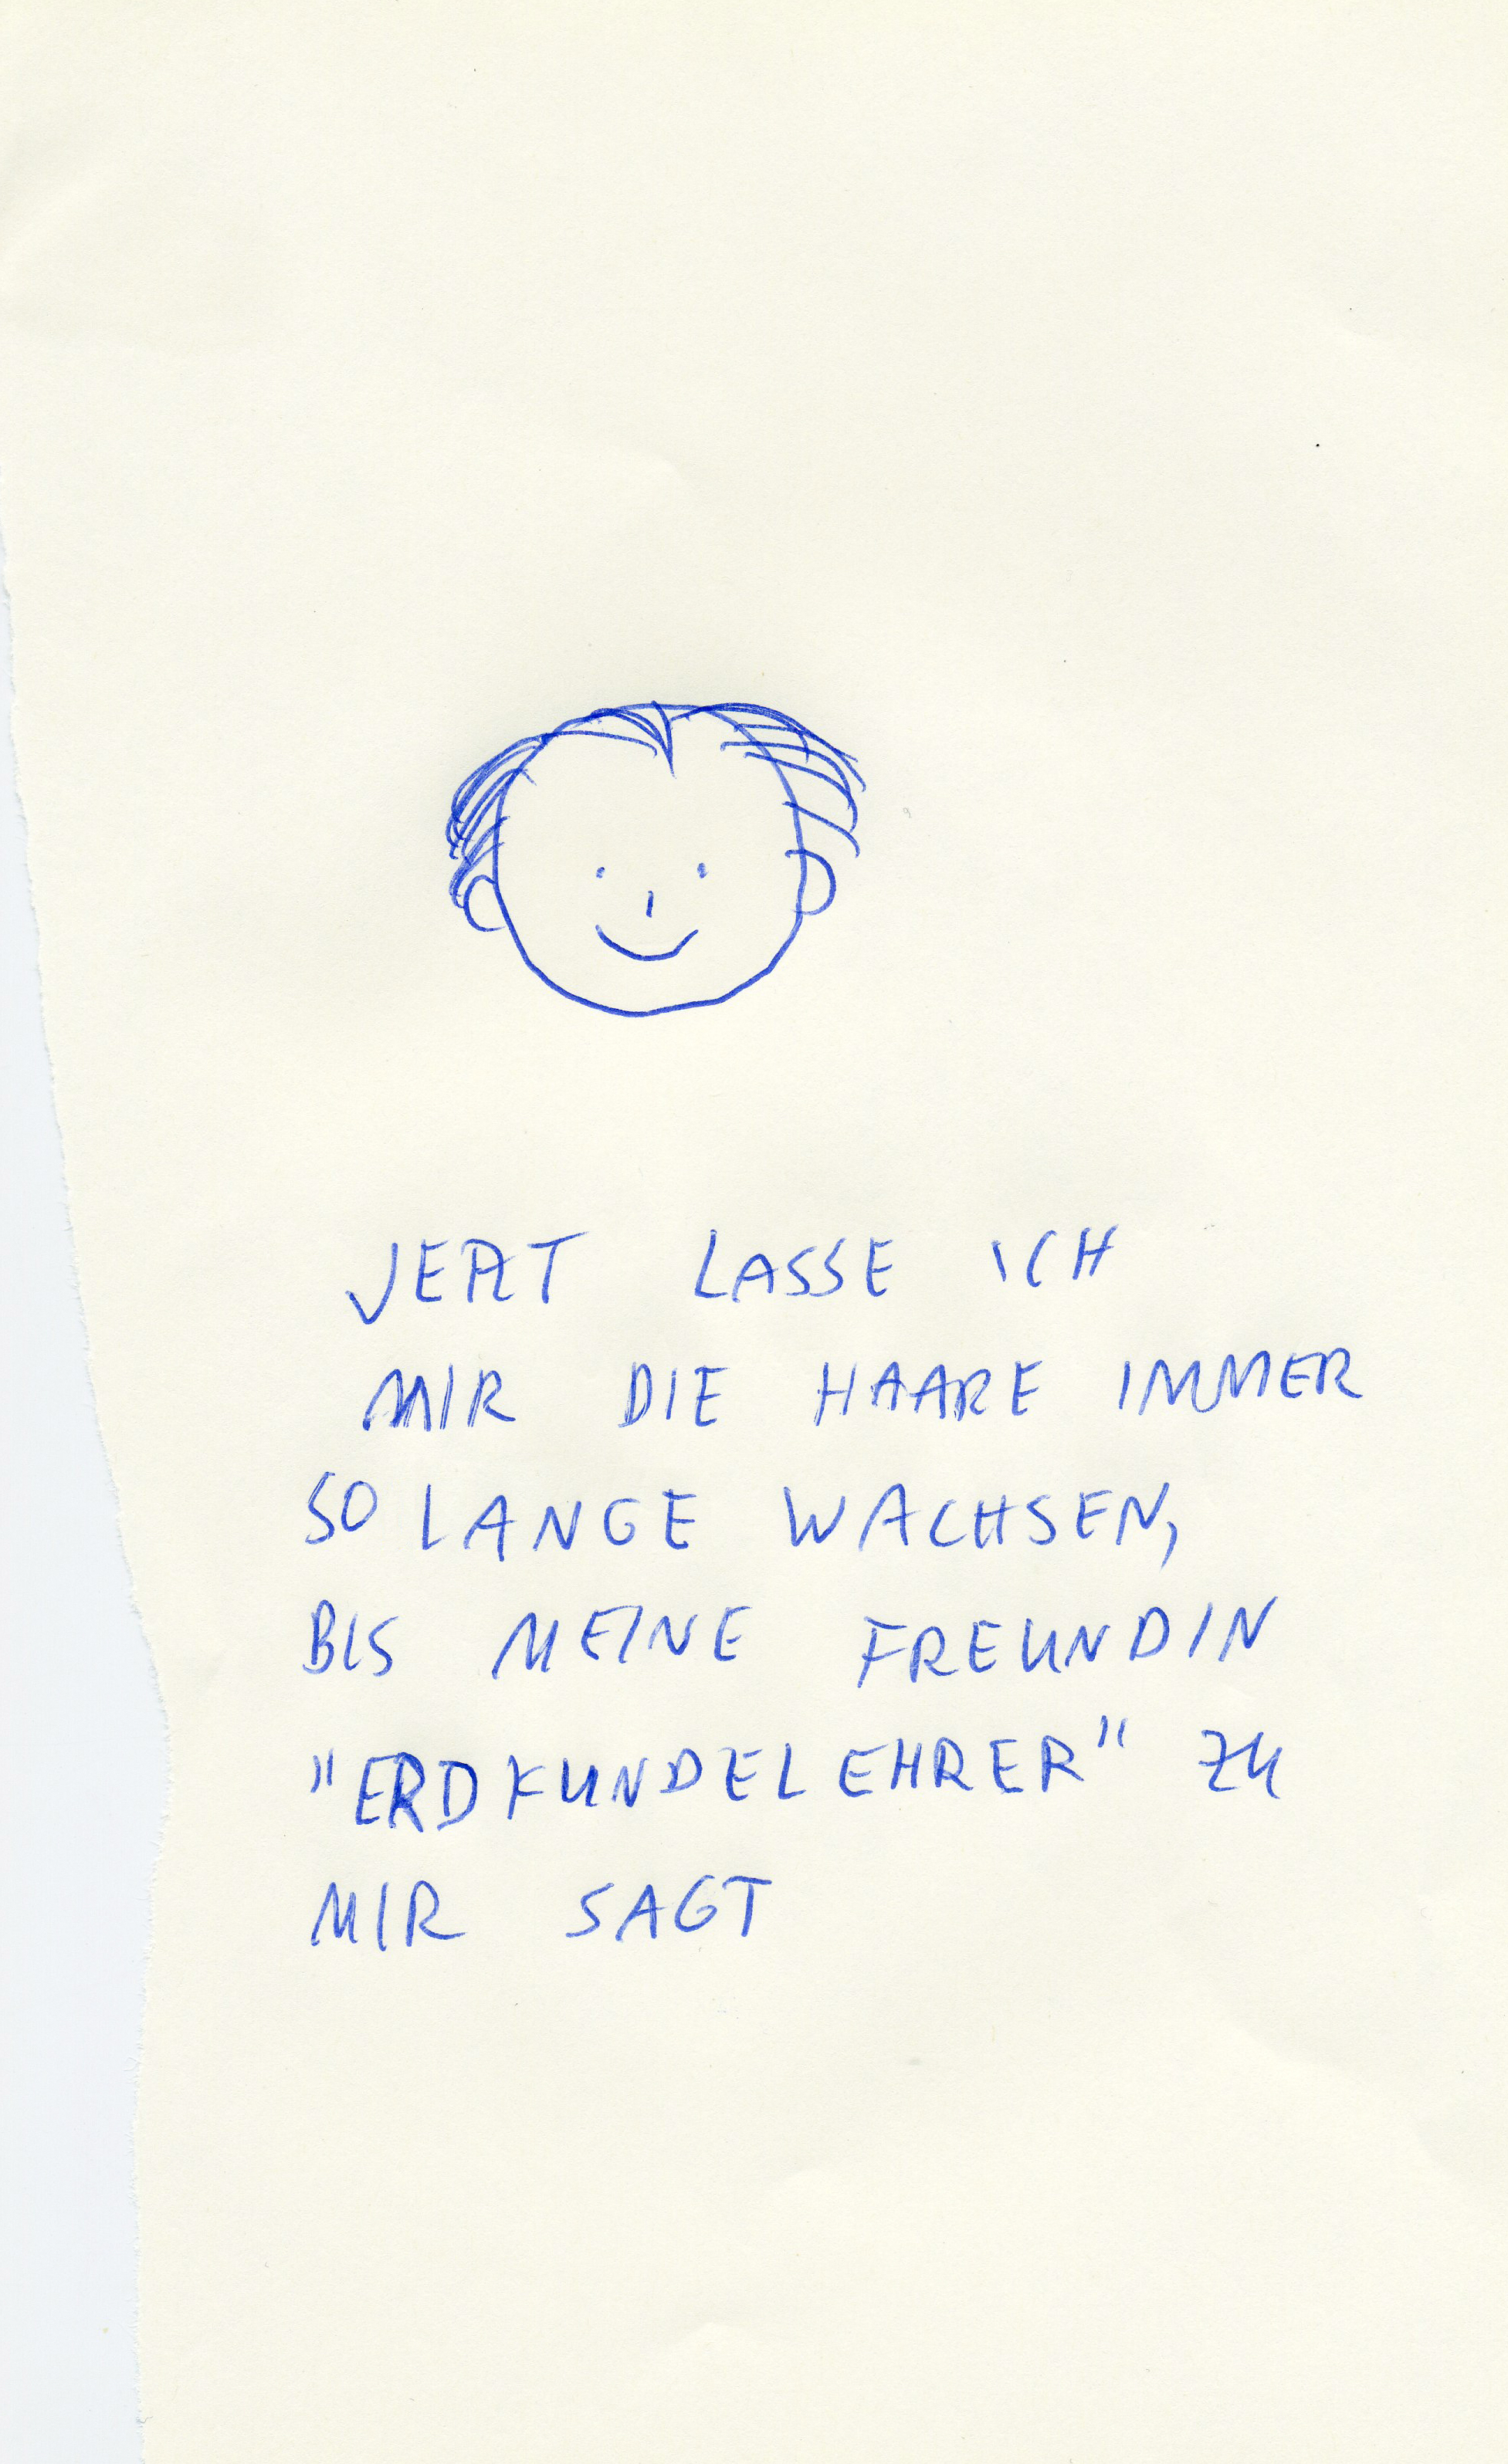 JETZT LASSE ICH
MIR DIE HAARE IMMER
SO LANGE WACHSEN,
BIS MEINE FREUNDIN
"ERDKUNDELEHRER" ZU
MIR SAGT